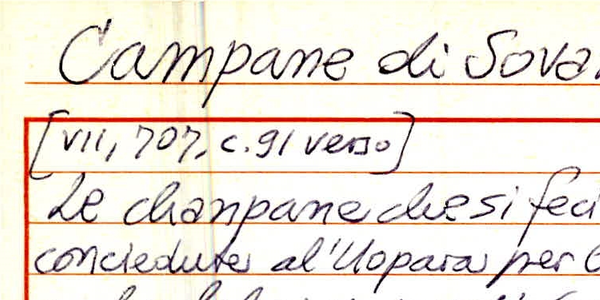 Campane di Sova
[VII, 707, c. 91 verso]
Le chanpane che si feci
conciedute al'Uopara per